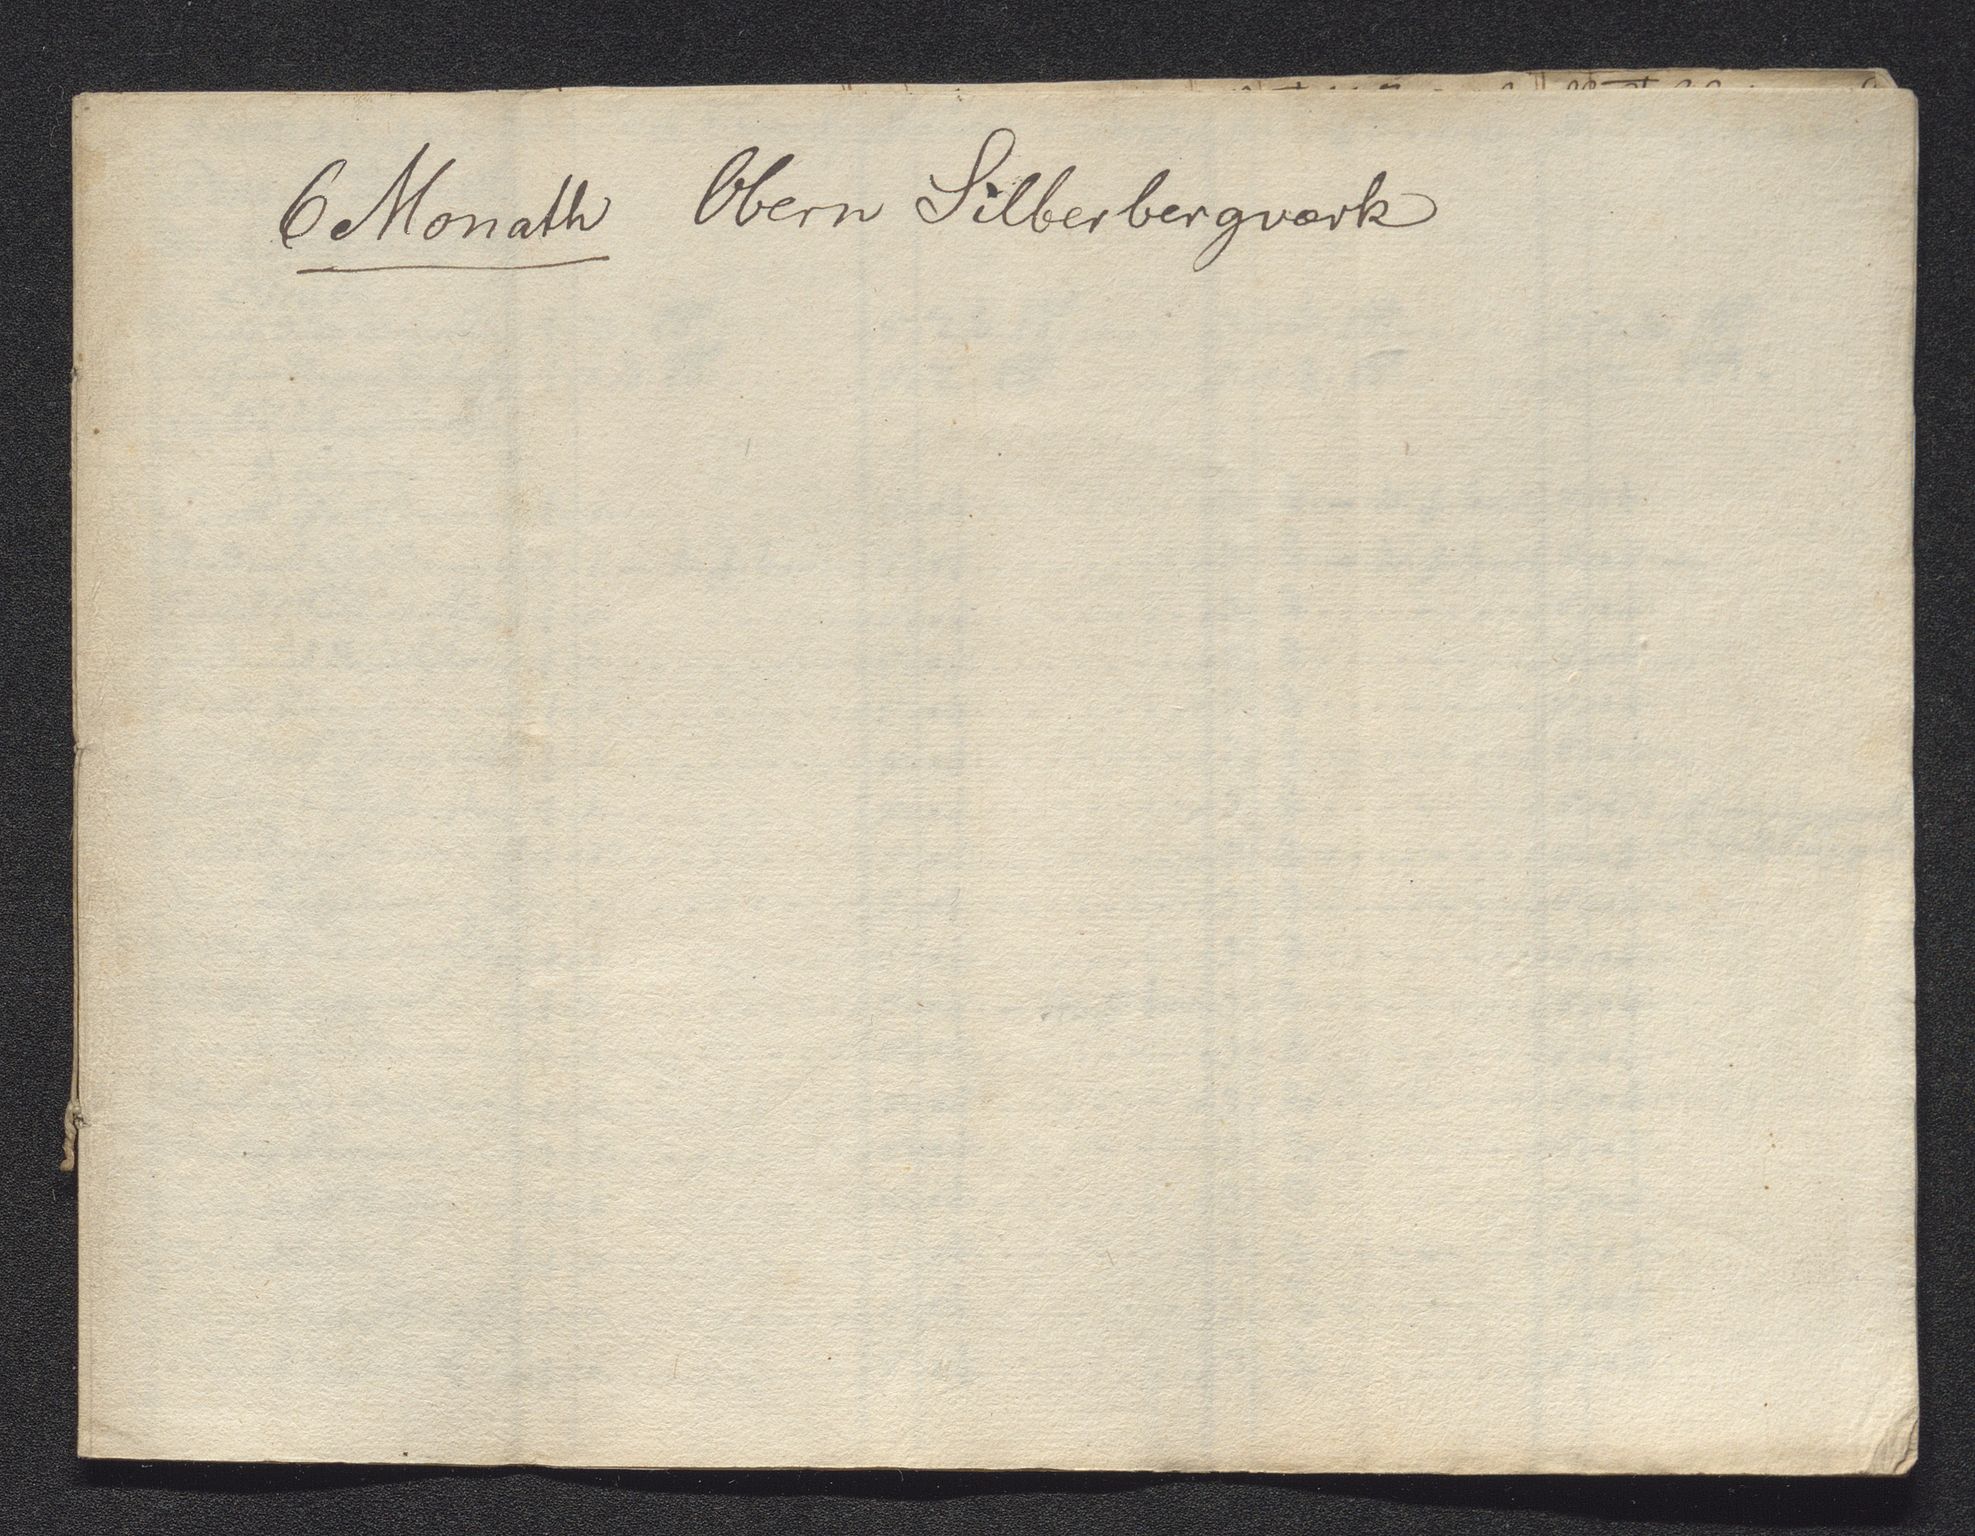 6 Monath Obern Silberbergværk